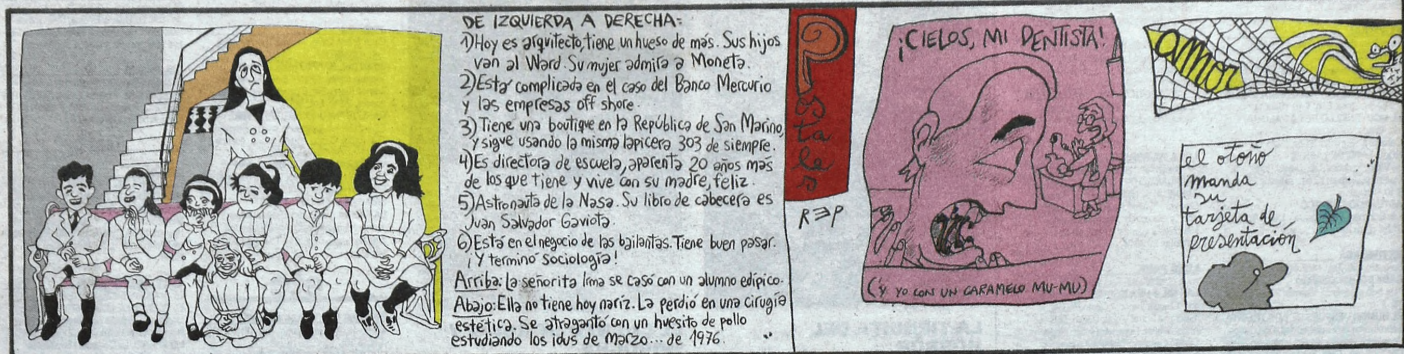 DE IZQUIERDA A DERECHA:
1) Hoy es arquitecto, tiene un hueso de más. Sus hijos
van al Ward. Su mujer admira a Moneta.
2) Está complicada en el caso del Banco Mercurio
y las empresas off shore.
3) Tiene una boutique en la República de San Marino,
y sigue usando la misma lapicera 303 de siempre.
4) Es directora de escuela, aparenta 20 años más
de los que tiene y vive con su madre, feliz.
5) Astronauta de la Nasa. Su libro de cabecera es
Juan Salvador Gaviota.
6) Está en el negocio de las bailantas. Tiene buen pasar.
¡Y terminó sociología!
Arriba: La señorita Irma se casó con un alumno edípico.
Abajo: Ella no tiene hoy nariz. La perdió en una cirugía
estética. Se atragantó con un huesito de pollo
estudiando los idus de marzo... de 1976.
Postales
REP
¡CIELOS, MI DENTISTA!
(Y YO CON UN CARAMELO MU-MU)
amor
el otoño
manda
su
tarjeta de
presentación